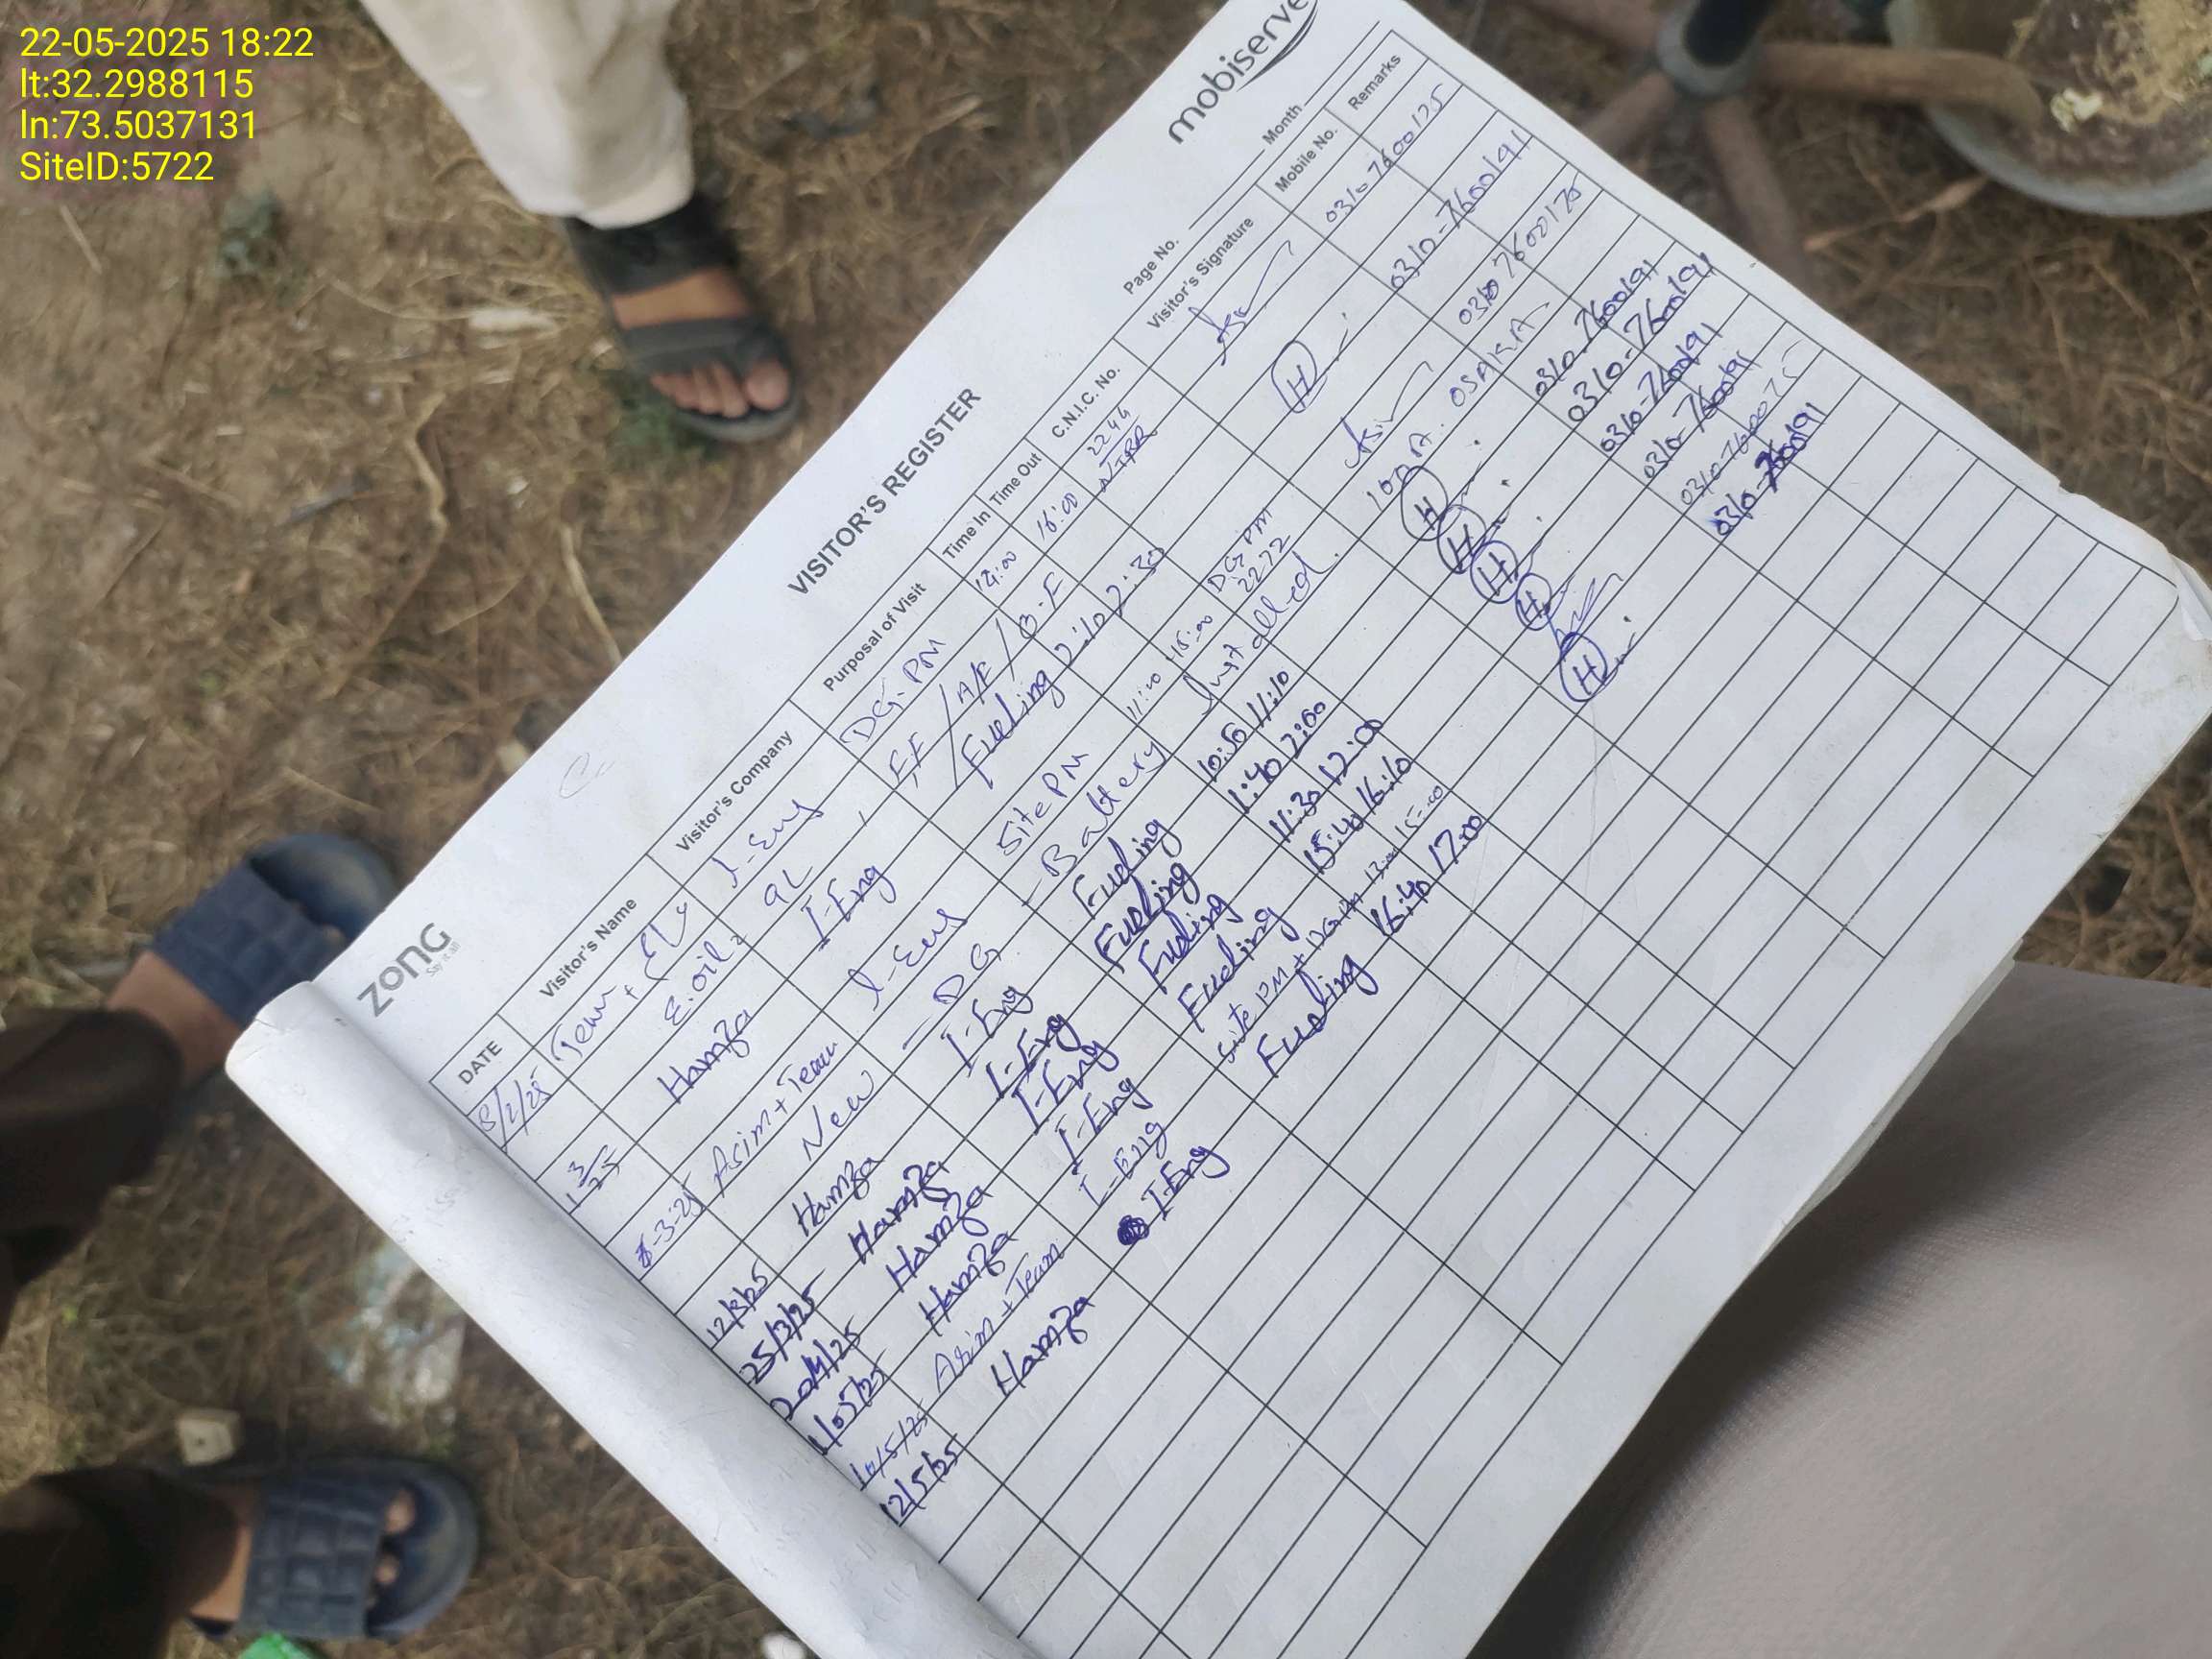 22-05-2025 18:22
lt:32.2988115
ln:73.5037131
SiteID:5722
zong
Say it all
mobiserve
VISITOR'S REGISTER
Page No. Month
DATE Visitor's Name Visitor's Company Purposal of Visit Time In Time Out C.N.I.C. No. Visitor's Signature Mobile No. Remarks
8/2/25 Team I-Eng DG-PM 16:00 2244 0310-7600125
E.oil 9L F/F / A/F / O-F
1 3/25 Hamza I-Eng Fueling 2:10 2:30 H 0310-7600191
-3-25 Asim + Team I-Eng Site PM 11:00 15:00 DG PM 2272 Asim 03107600125
New DG Battery Installed. 100 A. OSAKA
12/3/25 Hamza I-Eng Fueling 10:50 11:10 H 0310-7600191
25/3/25 Hamza I-Eng Fueling 1:40 2:00 H 0310-7600191
20/4/25 Hamza I-Eng Fueling 11:30 12:00 H 0310-7600191
1/05/25 Hamza I-Eng Fueling 15:40 16:10 H 0310-7600191
10/5/25 Asim + Team I-Eng Site PM + DG PM 13:00 15:00
12/5/25 Hamza I-Eng Fueling 16:40 17:00 H 0310-7600191